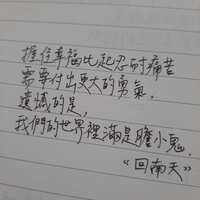 握住幸福比起忍耐痛苦
需要付出更大的勇氣。
遺憾的是，
我們的世界裡滿是膽小鬼.
“回南天”